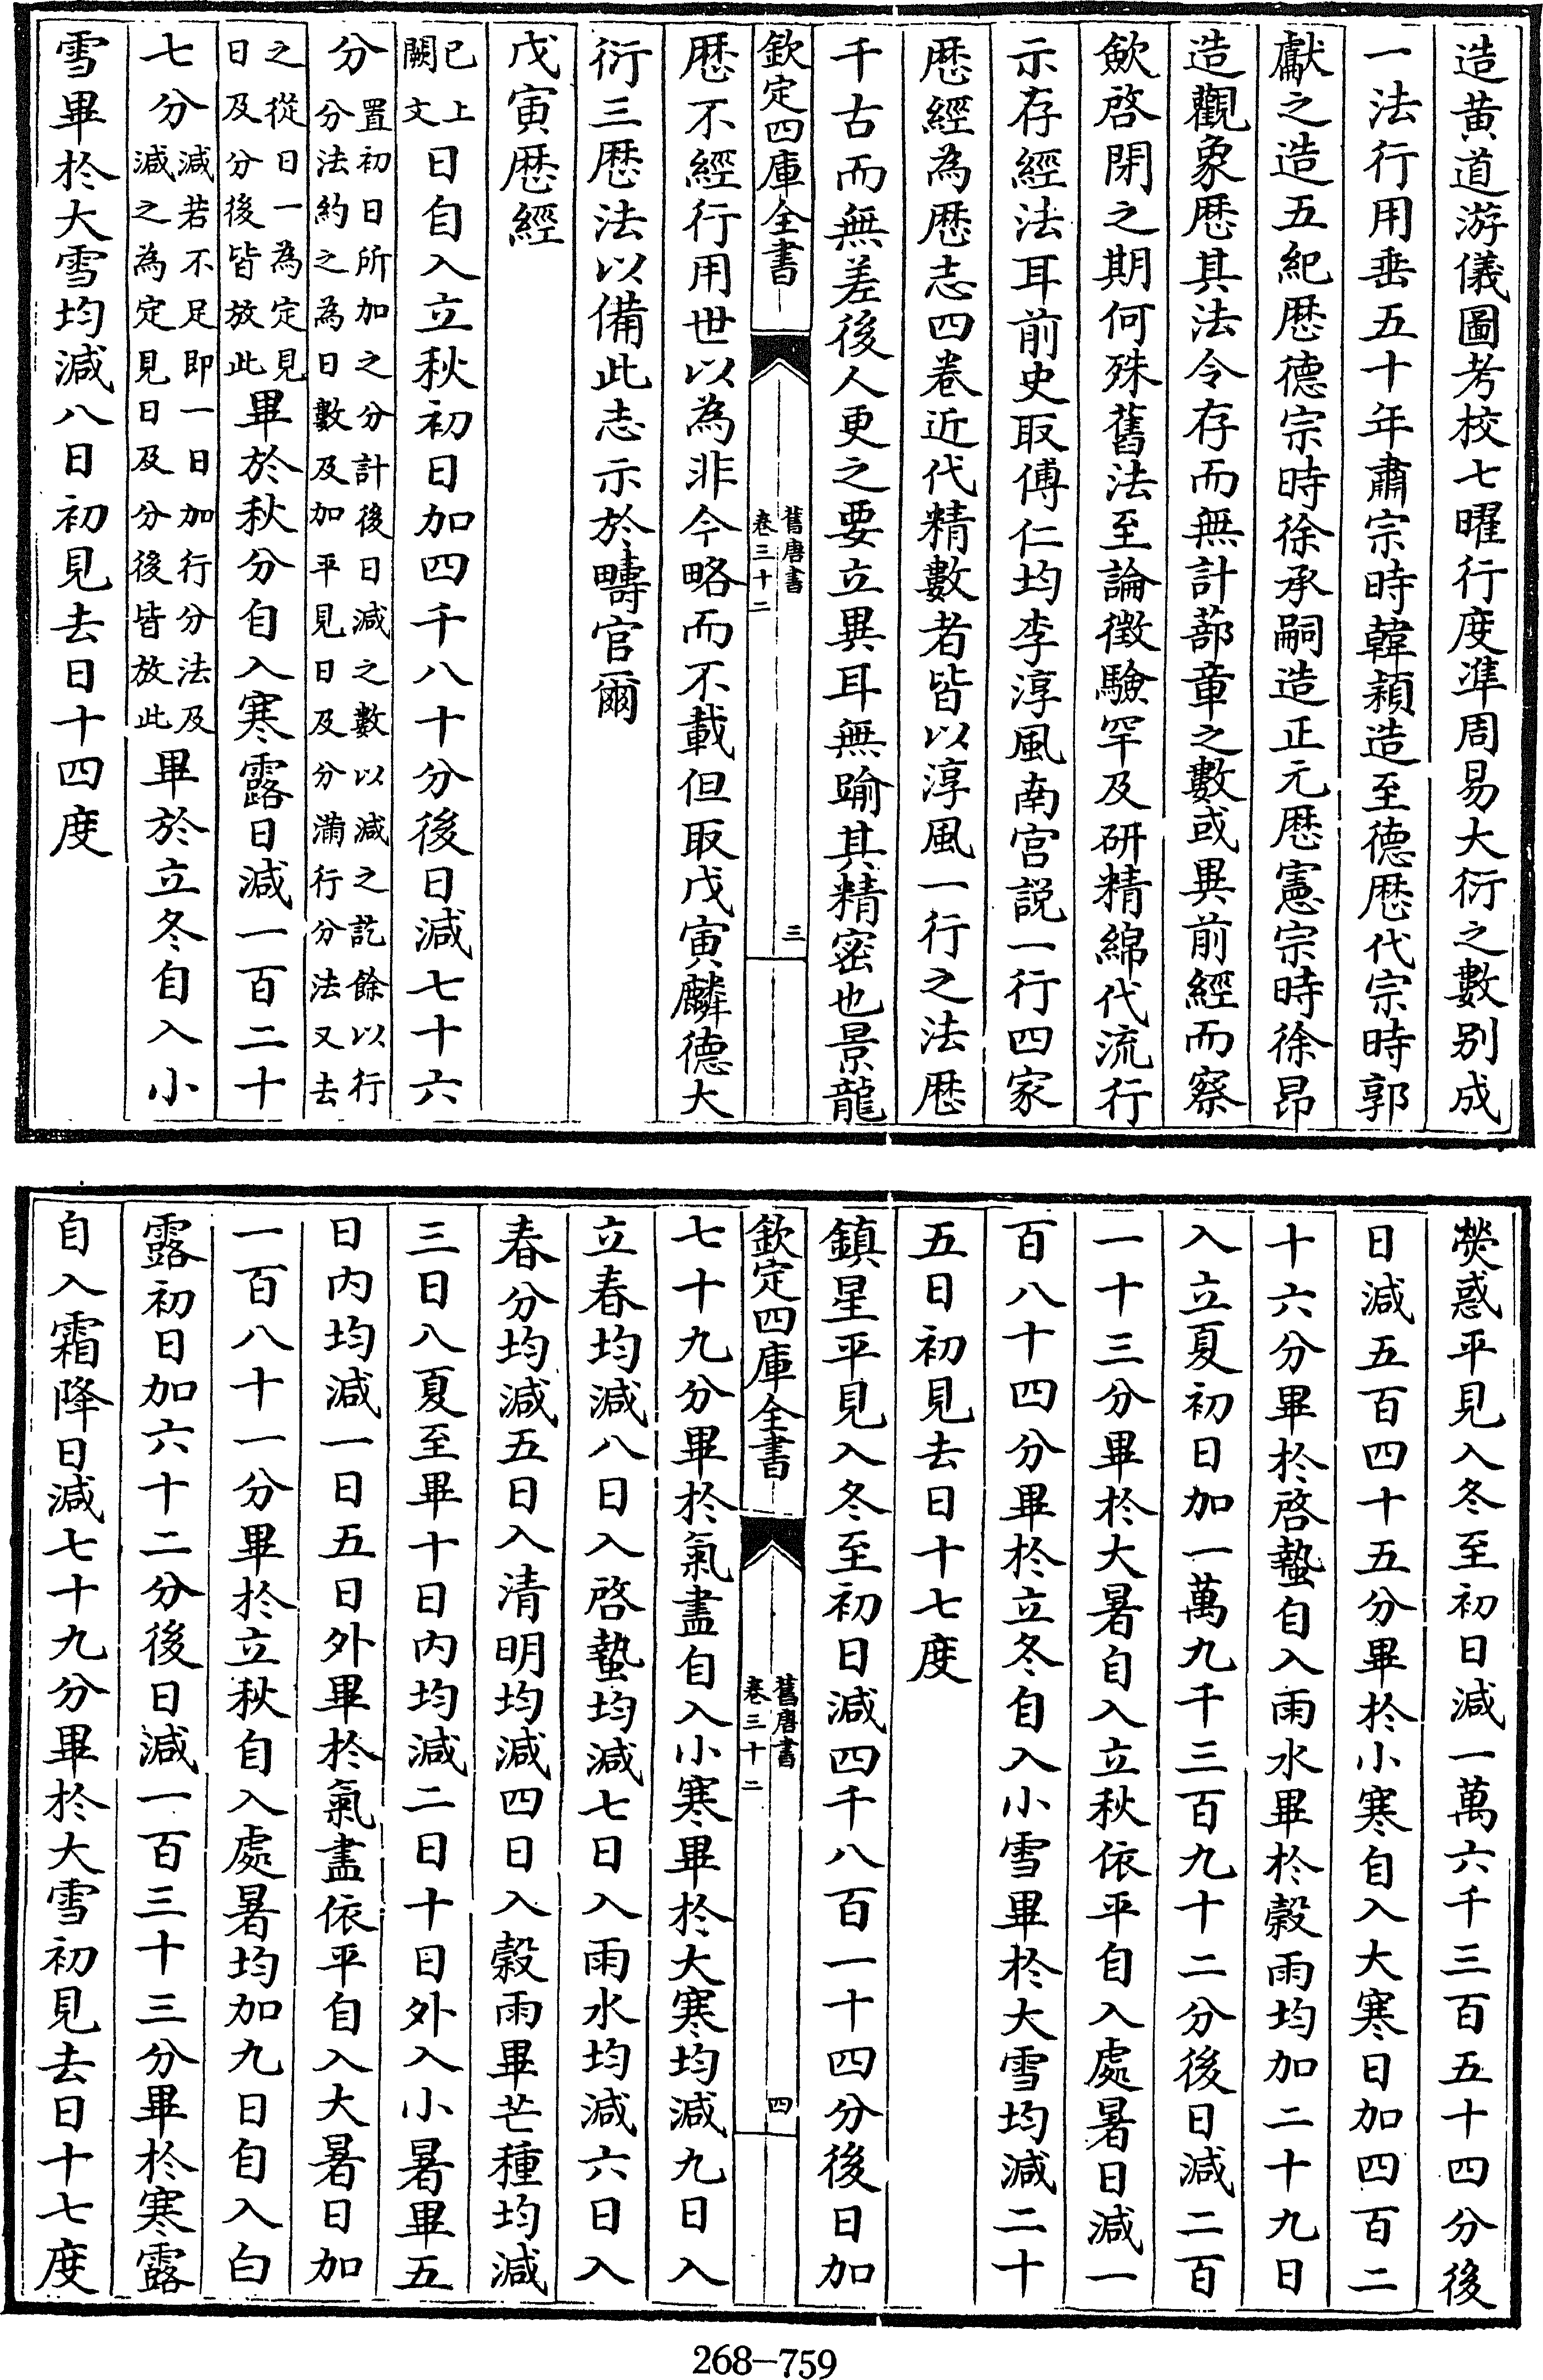 造黄道游儀圖考校七曜行度準周易大衍之數别成
一法行用垂五十年肅宗時韓穎造至德厯代宗時郭
獻之造五紀厯德宗時徐承嗣造正元厯憲宗時徐昂
造觀象厯其法令存而無計蔀章之數或異前經而察
歛啓閉之期何殊舊法至論徴驗罕及研精綿代流行
示存經法耳前史取傅仁均李淳風南宫説一行四家
厯經為厯志四卷近代精數者皆以淳風一行之法厯
千古而無差後人更之要立異耳無踰其精密也景龍
欽定四庫全書
舊唐書
卷三十二
三
厯不經行用世以為非今略而不載但取戊寅麟德大
衍三厯法以備此志示於疇官爾
戊寅厯經
已上
闕文
日自入立秋初日加四千八十分後日減七十六
分
置初日所加之分計後日減之數以減之訖餘以行
分法約之為日數及加平見日及分滿行分法又去
之從日一為定見
日及分後皆放此
畢於秋分自入寒露日減一百二十
七分
減若不足即一日加行分法及
減之為定見日及分後皆放此
畢於立冬自入小
雪畢於大雪均減八日初見去日十四度
熒惑平見入冬至初日減一萬六千三百五十四分後
日減五百四十五分畢於小寒自入大寒日加四百二
十六分畢於啓蟄自入雨水畢於穀雨均加二十九日
入立夏初日加一萬九千三百九十二分後日減二百
一十三分畢於大暑自入立秋依平自入處暑日減一
百八十四分畢於立冬自入小雪畢於大雪均減二十
五日初見去日十七度
鎮星平見入冬至初日減四千八百一十四分後日加
欽定四庫全書
舊唐書
卷三十二
四
七十九分畢於氣盡自入小寒畢於大寒均減九日入
立春均減八日入啓蟄均減七日入雨水均減六日入
春分均減五日入清明均減四日入穀雨畢芒種均減
三日入夏至畢十日内均減二日十日外入小暑畢五
日内均減一日五日外畢於氣盡依平自入大暑日加
一百八十一分畢於立秋自入處暑均加九日自入白
露初日加六十二分後日減一百三十三分畢於寒露
自入霜降日減七十九分畢於大雪初見去日十七度
268-759